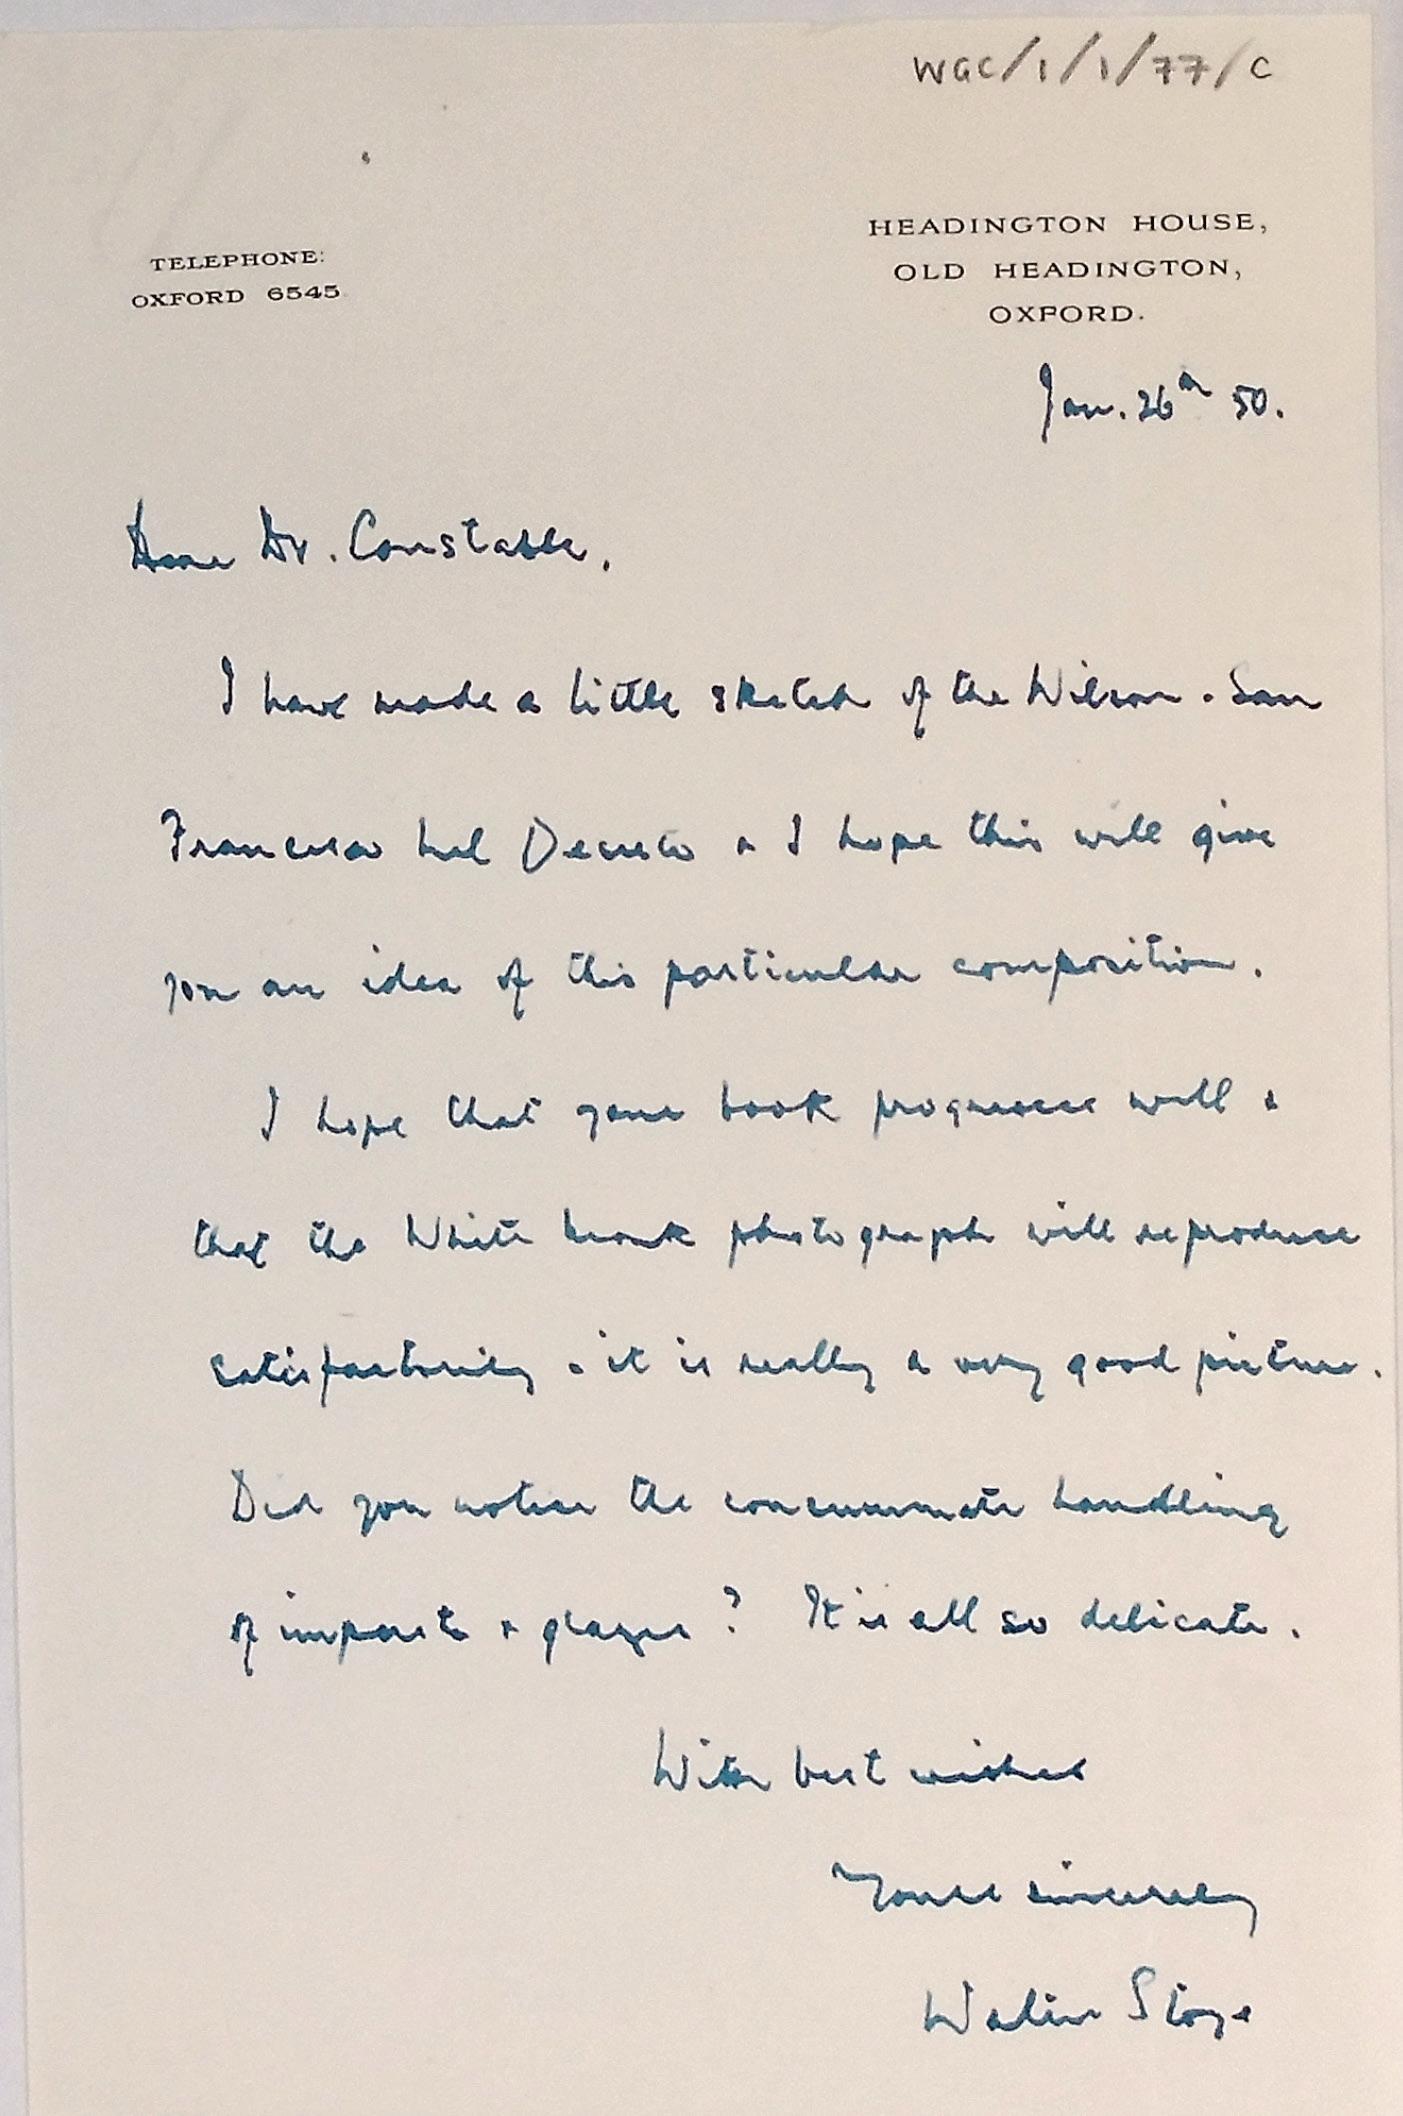 WGC/1/1/77/C
HEADINGTON HOUSE,
OLD HEADINGTON,
OXFORD.
TELEPHONE:
OXFORD 6545
Jan. 26th 50.
Dear Dr. Constable,
I have made a little sketch of the Wilson - San
Francesco del Deserto & I hope this will give
you an idea of this particular composition.
I hope that your book progresses well &
that the White Monk photograph will reproduce
satisfactorily - it is really a very good picture.
Did you notice the consummate handling
of impasto & glazes? It is all so delicate.
With best wishes
Yours sincerely
Walter Stoye